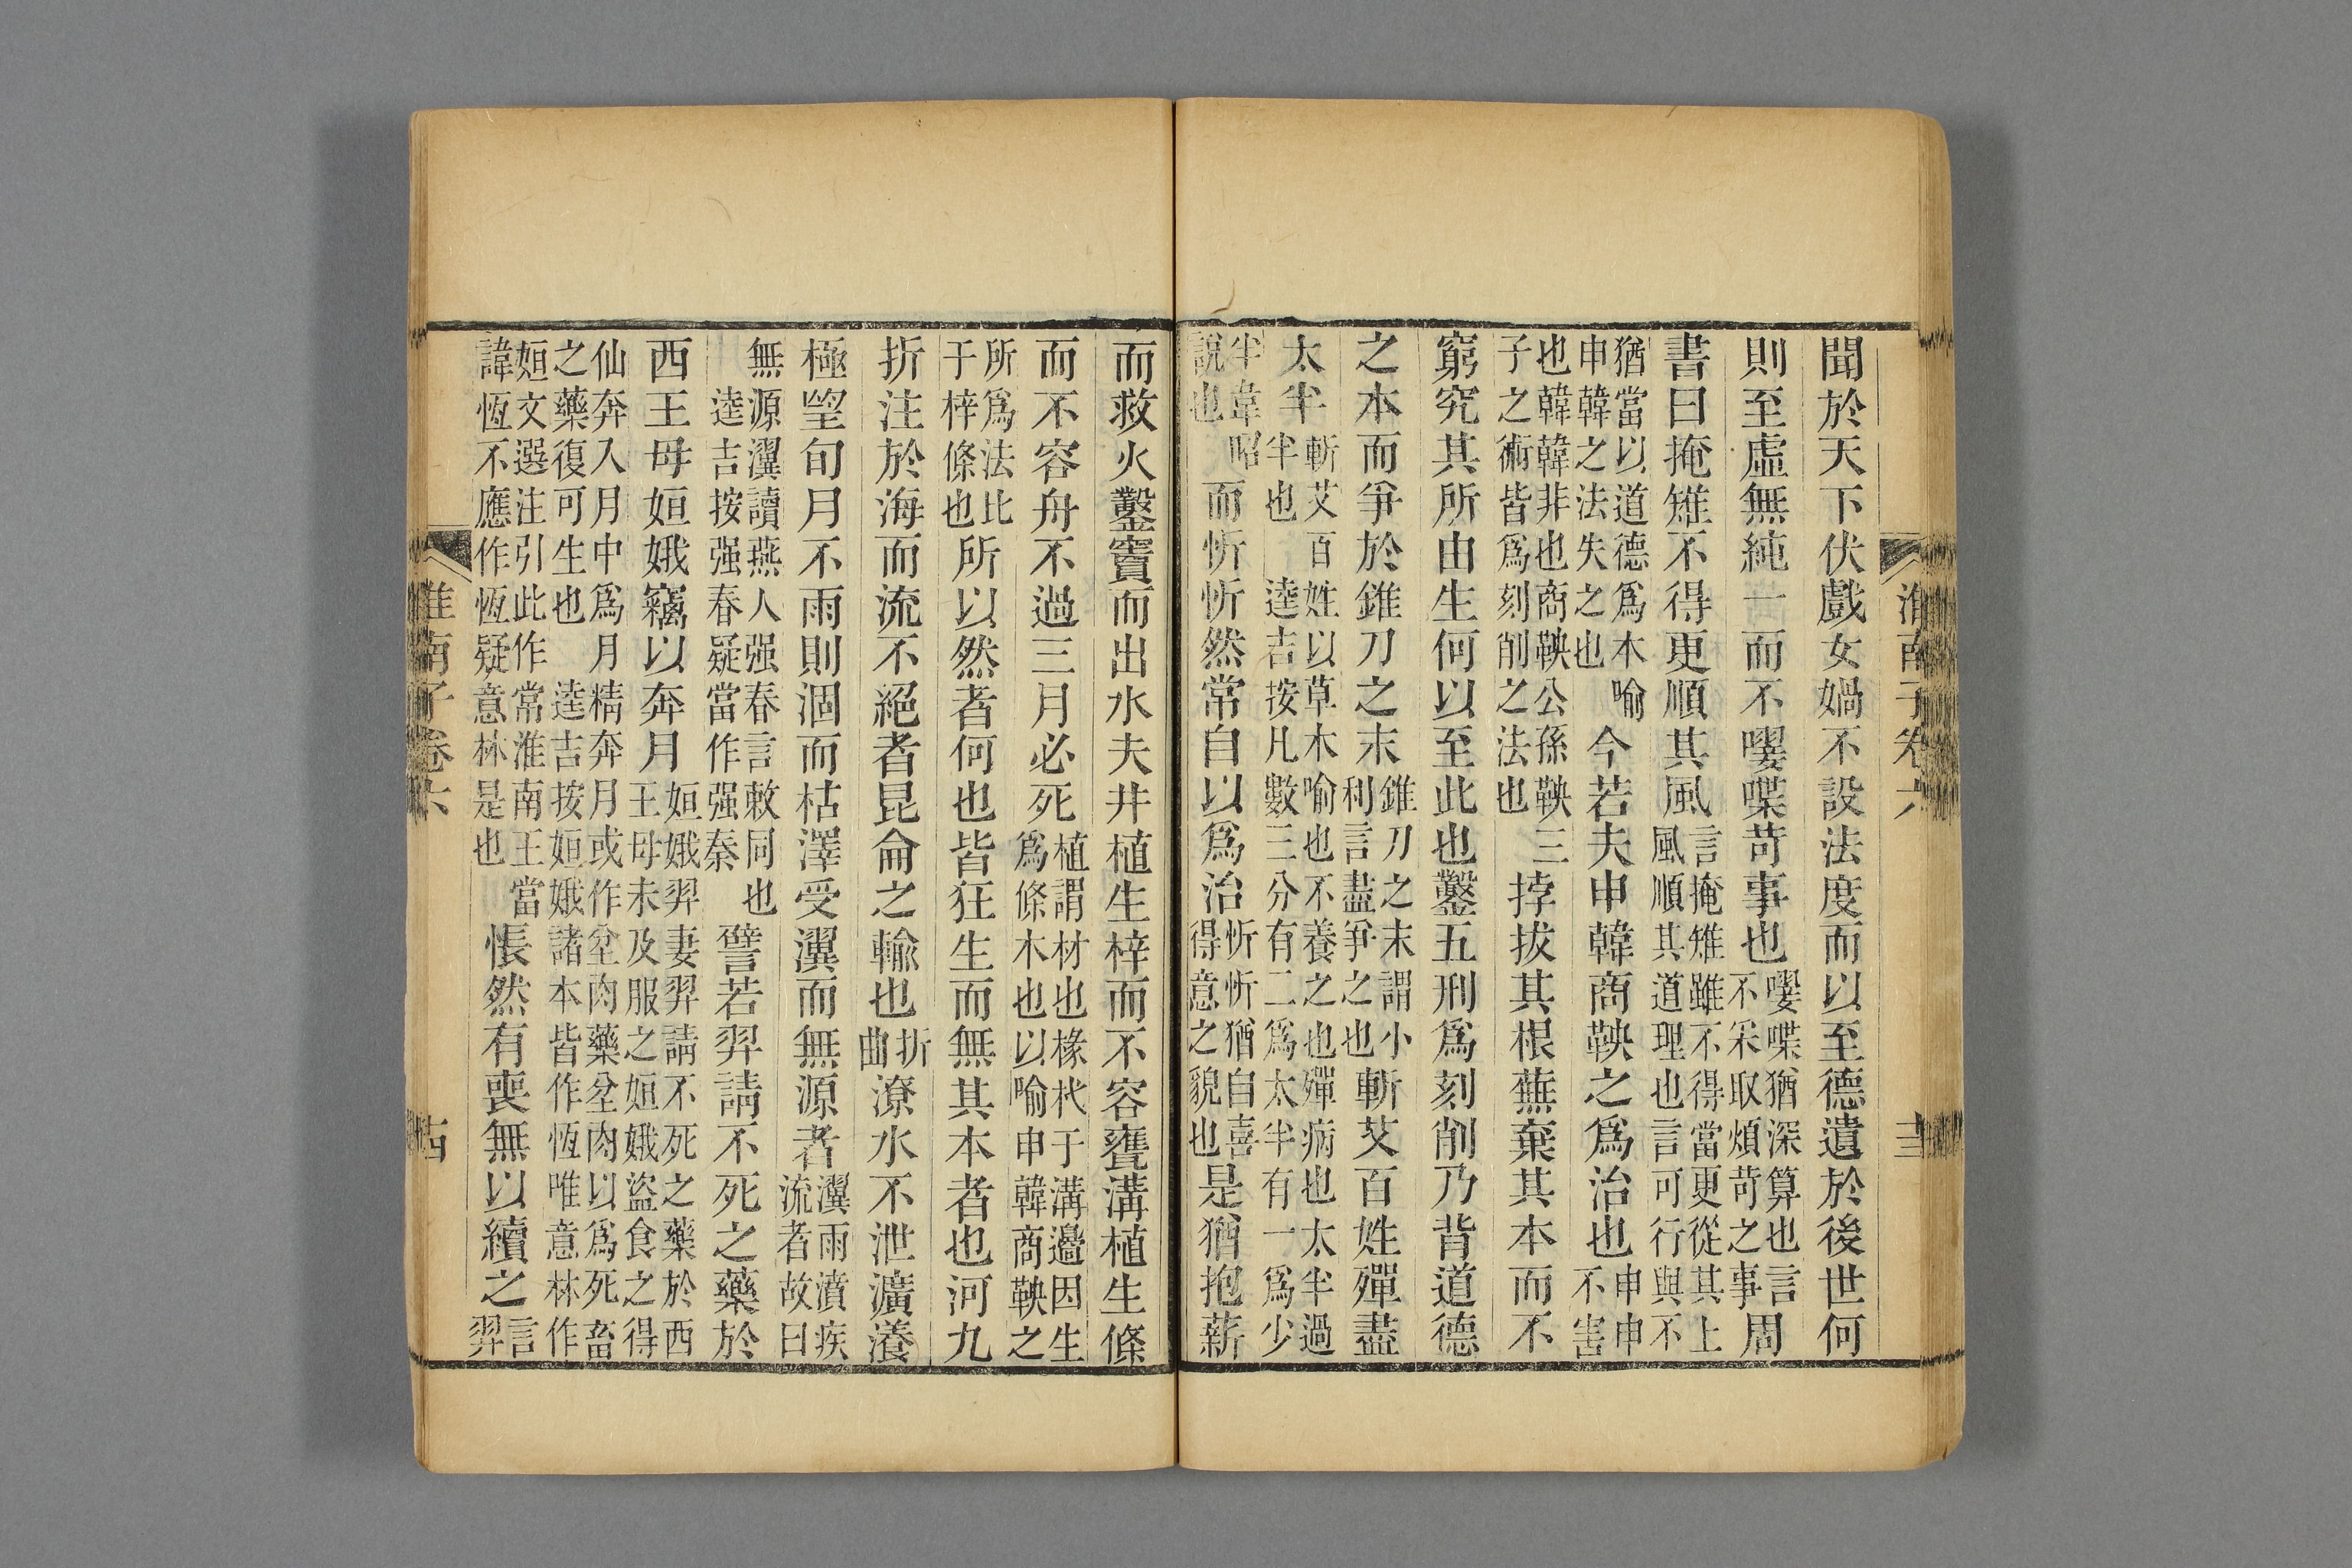 淮南子卷六
聞於天下伏戲女媧不設法度而以至德遺於後世何
則至虛無純一而不嚶喋苛事也
嚶喋猶深算也言
不采取煩苛之事
周
書曰掩雉不得更順其風
言掩雉雖不得當更從其上
風順其道理也言可行與不
猶當以道德爲本喻
申韓之法失之也
今若夫申韓商鞅之爲治也
申申
不害
也韓韓非也商鞅公孫鞅三
子之術皆爲刻削之法也
挬拔其根蕪棄其本而不
窮究其所由生何以至此也鑿五刑爲刻削乃背道德
之本而爭於錐刀之末
錐刀之末謂小
利言盡爭之也
斬艾百姓殫盡
太半
斬艾百姓以草木喻也不養之也殫病也太半過
半也 逵吉按凡數三分有二爲太半有一爲少
半韋昭
說也
而忻忻然常自以爲治
忻忻猶自喜
得意之貌也
是猶抱薪
而救火鑿竇而出水夫井植生梓而不容甕溝植生條
而不容舟不過三月必死
植謂材也椽杙于溝邊因生
爲條木也以喻申韓商鞅之
所爲法比
于梓條也
所以然者何也皆狂生而無其本者也河九
折注於海而流不絕者昆侖之輸也
折
曲
潦水不泄瀇瀁
極望旬月不雨則涸而枯澤受瀷而無源者
瀷雨濆疾
流者故曰
無源瀷讀燕人强春言敕同也
逵吉按强春疑當作强秦
譬若羿請不死之藥於
西王母姮娥竊以奔月
姮娥羿妻羿請不死之藥於西
王母未及服之姮娥盜食之得
仙奔入月中爲月精奔月或作坌肉藥坌肉以爲死畜
之藥復可生也 逵吉按姮娥諸本皆作恆唯意林作
姮文選注引此作常淮南王當
諱恆不應作恆疑意林是也
悵然有喪無以續之
言
羿
淮南子卷六